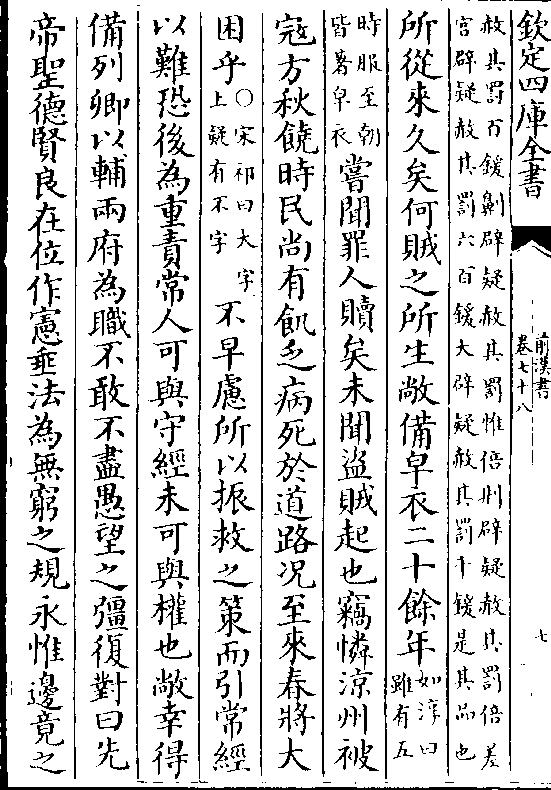 欽定四庫全書
前漢書
卷七十八
七
赦其罰百鍰劓辟疑赦其罰惟倍剕辟疑赦其罰倍差
宫辟疑赦其罰六百鍰大辟疑赦其罰千鍰是其品也
所從來久矣何賊之所生敞備皁衣二十餘年如淳曰雖有五
時服至朝皆著皁衣嘗聞罪人贖矣未聞盜賊起也竊憐涼州被
冦方秋饒時民尚有飢乏病死於道路况至來春將大
困乎○宋祁曰大字上疑有不字不早慮所以振救之策而引常經
以難恐後為重責常人可與守經未可與權也敞幸得
備列卿以輔兩府為職不敢不盡愚望之彊復對曰先
帝聖德賢良在位作憲垂法為無窮之規永惟邊竟之